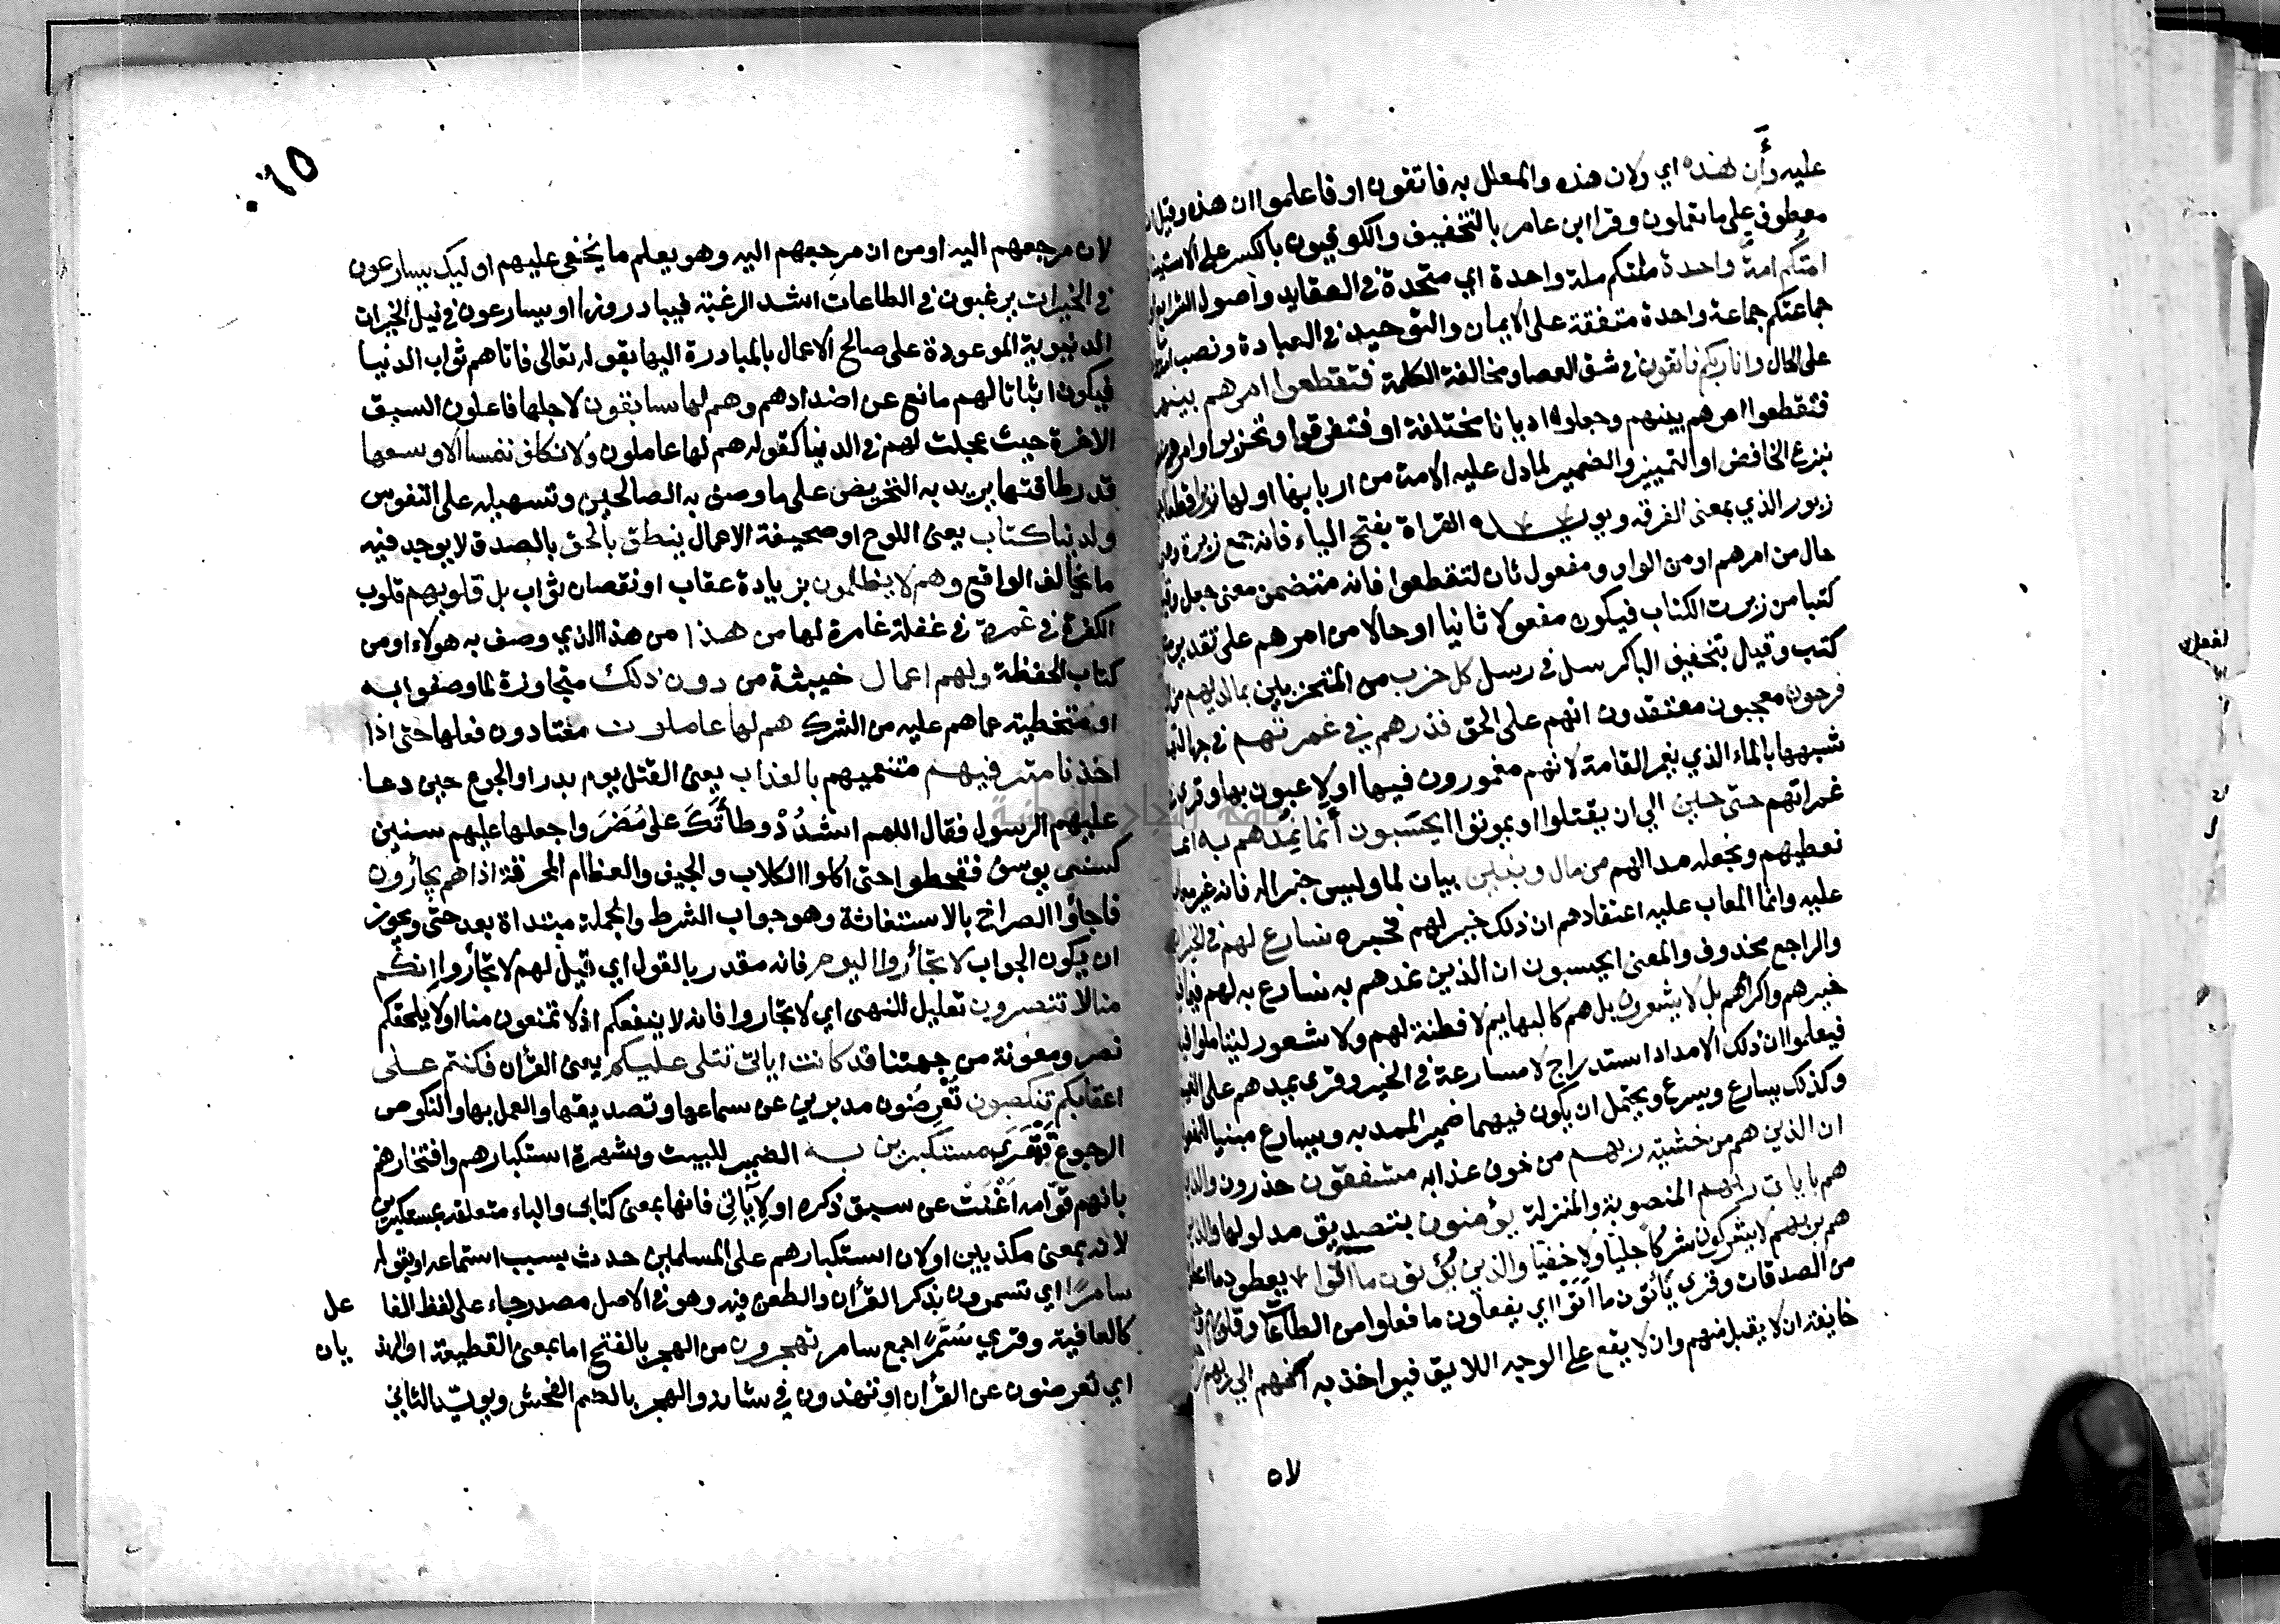 عليه وأن هذه اي ولان هذه والمعلل به فاتقون او فاعلموا ان هذه وقيل
معطوف على ما تعملون وقرا ابن عامر بالتخفيف والكوفيون بالكسر على الاستيناف
امتكم امة واحدة ملتكم ملة واحدة اي متحدة في العقايد واصول الشرايع
جماعتكم جماعة واحدة متفقة على الايمان والتوحيد في العبادة ونصب امة
على الحال وانا ربكم فاتقون في شق العصا ومخالفة الكلمة فتقطعوا امرهم بينهم
فتقطعوا امرهم بينهم وجعلوه اديانا مختلفة او فتفرقوا وتحزبوا وامرهم
بنزع الخافض او التمييز والضمير لما دل عليه الامة من اربابها او لها زبرا قطعا
زبور الذي بمعنى الفرقة ويويده القراة بفتح الباء فانه جمع زبرة وهو
حال من امرهم او من الواو ومفعول ثان لتقطعوا فانه متضمن معنى جعل وقيل
كتبا من زبرت الكتاب فيكون مفعولا ثانيا او حالا من امرهم على تقدير
كتب وقيل بتخفيف البا كرسل في رسل كل حزب من المتحزبين بما لديهم من
فرحون معجبون معتقدون انهم على الحق فذرهم في غمرتهم في جهالتهم
شبهها بالماء الذي يغمر القامة لانهم مغمورون فيها او لاعبون بها وقرئ
غمراتهم حتى حين الي ان يقتلوا او يموتوا ايحسبون أنما نمدهم به انما
نعطيهم ونجعله مدالهم من مال وبنين بيان لما وليس خبرا له فانه غير معاب
عليه وانما المعاب عليه اعتقادهم ان ذلك خير لهم فخبره نسارع لهم في الخيرات
والراجع محذوف والمعنى ايحسبون ان الذين نمدهم به نسارع به لهم فيما فيه
خيرهم واكرامهم بل لا يشعرون بل هم كالبهايم لا فطنة لهم ولا شعور ليتاملوا فيه
فيعلموا ان ذلك الامداد استدراج لا مسارعة في الخير وقرى يمدهم على الغيبة
وكذلك يسارع ويسرع ويحتمل ان يكون فيهما ضمير الممد به ويسارع مبنيا للمفعول
ان الذين هم من خشية ربهم من خوف عذابه مشفقون حذرون والذين
هم بايات ربهم المنصوبة والمنزلة يؤمنون بتصديق مدلولها والذين
هم بربهم لا يشركون شركا جليا ولا خفيا والذين يؤتون ما اتوا يعطون ما اعطوه
من الصدقات وقرى يأتون ما أتوا اي يفعلون ما فعلوا من الطاعات وقلوبهم
خايفة ان لا يقبل منهم وان لا يقع على الوجه اللايق فيواخذ به انهم الي ربهم
٥٧
٦٥
لان مرجعهم اليه او من ان مرجعهم اليه وهو يعلم ما يخفى عليهم اوليك يسارعون
في الخيرات يرغبون في الطاعات اشد الرغبة فيبادرونها او يسارعون في نيل الخيرات
الدنيوية الموعودة على صالح الاعمال بالمبادرة اليها بقوله تعالى فاتاهم ثواب الدنيا
فيكون اثباتا لهم ما نع عن اضدادهم وهم لها سابقون لاجلها فاعلون السبق
الاخرة حيث عجلت لهم في الدنيا كقوله هم لها عاملون ولا نكلف نفسا الا وسعها
قدر طاقتها يريد به التحريض على ما وصف به الصالحين وتسهيله على النفوس
ولدينا كتاب يعنى اللوح او صحيفة الاعمال ينطق بالحق بالصدق لا يوجد فيه
ما يخالف الواقع وهم لا يظلمون بزيادة عقاب او نقصان ثواب بل قلوبهم قلوب
الكفرة في غمرة في غفلة غامرة لها من هذا من هذا الذي وصف به هولاء او من
كتاب الحفظة ولهم اعمال خبيثة من دون ذلك متجاوزة لما وصفوا به
او متخطية عما هم عليه من الشرك هم لها عاملون مقتادون فعلها حتى اذا
اخذنا مترفيهم متنعميهم بالعذاب يعنى القتل يوم بدر او الجوع حين دعا
عليهم الرسول فقال اللهم اشدُدْ وطأتَكَ على مُضَرَ واجعلها عليهم سنين
كسنى يوسف فقحطوا حتى اكلوا الكلاب والجيف والعظام المحرقة اذا هم يجأرون
فاجأوا الصراخ بالاستغاثة وهو جواب الشرط والجملة مبتداة بعد حتى ويجوز
ان يكون الجواب لا تجأروا اليوم فانه مقدر بالقول اي قيل لهم لا تجأروا انكم
منا لا تنصرون تعليل للنهى اي لا تجاروا فانه لا ينفعكم اذ لا تمنعون منا او لا يلحقكم
نصر ومعونة من جهتنا قد كانت اياتى تتلى عليكم يعنى القرأن فكنتم على
اعقابكم تنكصون تُعْرِضُون مدبرين عن سماعها وتصديقها والعمل بها والنكوص
الرجوع قهقرى مستكبرين به الضمير للبيت وشهرة استكبارهم وافتخارهم
بانهم قوّامه اغنت عن سبق ذكره او لِآياتى فانها بمعنى كتابى والباء متعلقه بمستكبرين
لانه بمعنى مكذبين او لان استكبارهم على المسلمين حدث بسبب استماعه او بقوله
سامرًا اي تسمرون بذكر القرأن والطعن فيه وهو في الاصل مصدر جاء على لفظ الفا عل
كالعافية وقرى سُمَّرًا جمع سامر تهجرون من الهجر بالفتح اما بمعنى القطيعة او الهذ يان
اي تعرضون عن القرأن او تهذون في شانه والهجر بالضم الفحش ويويد الثاني